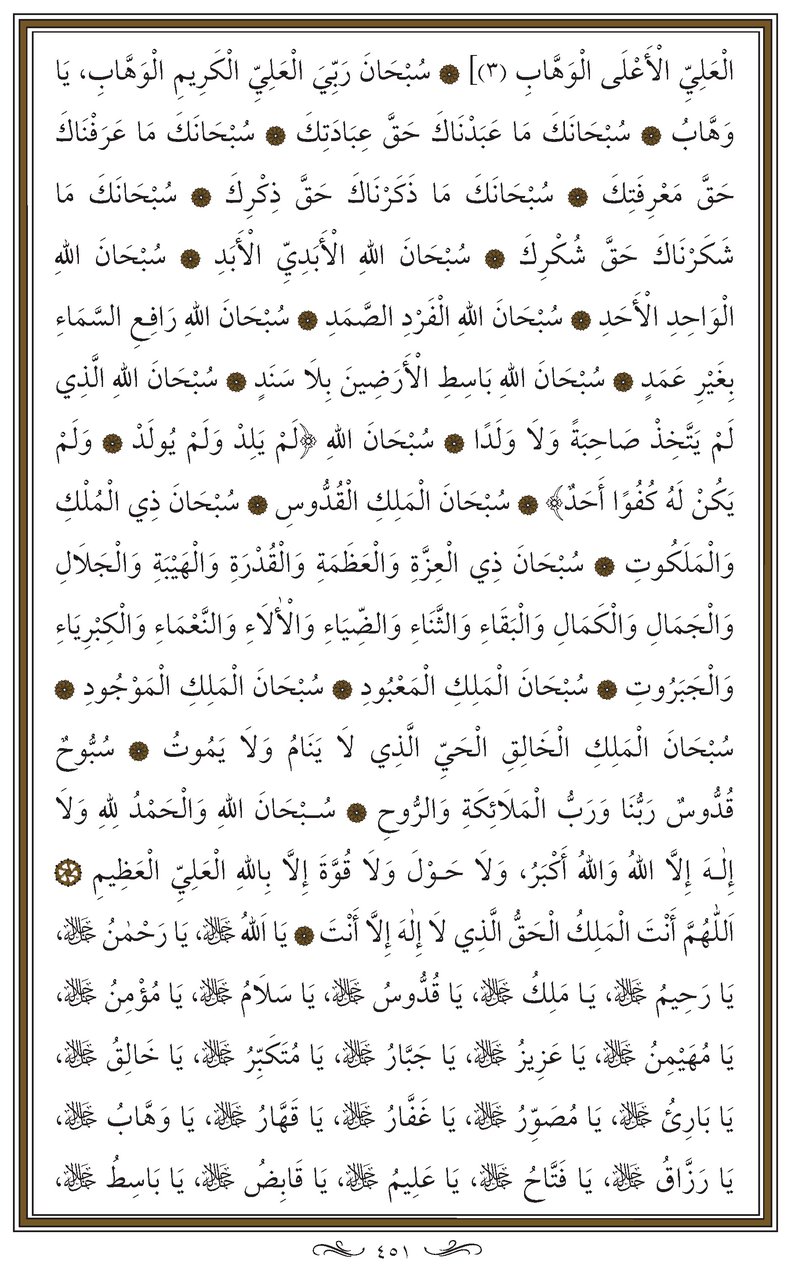 الْعَلِيِّ الْأَعْلَى الْوَهَّابِ (٣)] ۞ سُبْحَانَ رَبِّيَ الْعَلِيِّ الْكَرِيمِ الْوَهَّابِ، يَا
وَهَّابُ ۞ سُبْحَانَكَ مَا عَبَدْنَاكَ حَقَّ عِبَادَتِكَ ۞ سُبْحَانَكَ مَا عَرَفْنَاكَ
حَقَّ مَعْرِفَتِكَ ۞ سُبْحَانَكَ مَا ذَكَرْنَاكَ حَقَّ ذِكْرِكَ ۞ سُبْحَانَكَ مَا
شَكَرْنَاكَ حَقَّ شُكْرِكَ ۞ سُبْحَانَ اللهِ الْأَبَدِيِّ الْأَبَدِ ۞ سُبْحَانَ اللهِ
الْوَاحِدِ الْأَحَدِ ۞ سُبْحَانَ اللهِ الْفَرْدِ الصَّمَدِ ۞ سُبْحَانَ اللهِ رَافِعِ السَّمَاءِ
بِغَيْرِ عَمَدٍ ۞ سُبْحَانَ اللهِ بَاسِطِ الْأَرَضِينَ بِلَا سَنَدٍ ۞ سُبْحَانَ اللهِ الَّذِي
لَمْ يَتَّخِذْ صَاحِبَةً وَلَا وَلَدًا ۞ سُبْحَانَ اللهِ ﴿لَمْ يَلِدْ وَلَمْ يُولَدْ ۞ وَلَمْ
يَكُنْ لَهُ كُفُوًا أَحَدٌ﴾ ۞ سُبْحَانَ الْمَلِكِ الْقُدُّوسِ ۞ سُبْحَانَ ذِي الْمُلْكِ
وَالْمَلَكُوتِ ۞ سُبْحَانَ ذِي الْعِزَّةِ وَالْعَظَمَةِ وَالْقُدْرَةِ وَالْهَيْبَةِ وَالْجَلَالِ
وَالْجَمَالِ وَالْكَمَالِ وَالْبَقَاءِ وَالثَّنَاءِ وَالضِّيَاءِ وَالْأٰلَاءِ وَالنَّعْمَاءِ وَالْكِبْرِيَاءِ
وَالْجَبَرُوتِ ۞ سُبْحَانَ الْمَلِكِ الْمَعْبُودِ ۞ سُبْحَانَ الْمَلِكِ الْمَوْجُودِ ۞
سُبْحَانَ الْمَلِكِ الْخَالِقِ الْحَيِّ الَّذِي لَا يَنَامُ وَلَا يَمُوتُ ۞ سُبُّوحٌ
قُدُّوسٌ رَبُّنَا وَرَبُّ الْمَلَائِكَةِ وَالرُّوحِ ۞ سُـبْحَانَ اللهِ وَالْحَمْدُ لِلهِ وَلَا
إِلٰـهَ إِلَّا اللهُ وَاللهُ أَكْبَرُ، وَلَا حَـوْلَ وَلَا قُوَّةَ إِلَّا بِاللهِ الْعَلِيِّ الْعَظِيمِ ۞
اَللّٰهُمَّ أَنْتَ الْمَلِكُ الْحَقُّ الَّذِي لَا إِلٰهَ إِلَّا أَنْتَ ۞ يَا اَللهُ ﷻ، يَا رَحْمٰنُ ﷻ،
يَا رَحِيمُ ﷻ، يَا مَلِكُ ﷻ، يَا قُدُّوسُ ﷻ، يَا سَلَامُ ﷻ، يَا مُؤْمِنُ ﷻ،
يَا مُهَيْمِنُ ﷻ، يَا عَزِيزُ ﷻ، يَا جَبَّارُ ﷻ، يَا مُتَكَبِّرُ ﷻ، يَا خَالِقُ ﷻ،
يَا بَارِئُ ﷻ، يَا مُصَوِّرُ ﷻ، يَا غَفَّارُ ﷻ، يَا قَهَّارُ ﷻ، يَا وَهَّابُ ﷻ،
يَا رَزَّاقُ ﷻ، يَا فَتَّاحُ ﷻ، يَا عَلِيمُ ﷻ، يَا قَابِضُ ﷻ، يَا بَاسِطُ ﷻ،
٤٥١